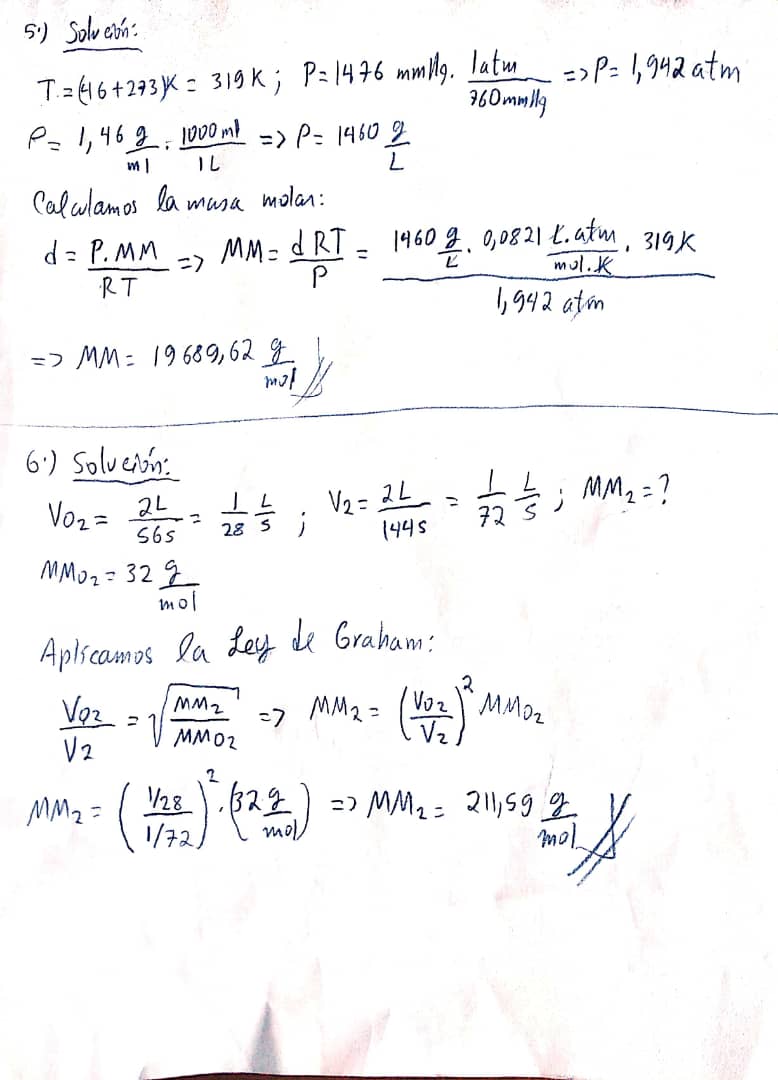 5.) Solución:
T = (46+273)K = 319 K ; P = 1476 mmHg . 1atm / 760 mmHg => P = 1,942 atm
ρ = 1,46 g/ml . 1000 ml / 1L => ρ = 1460 g/L
Calculamos la masa molar:
d = P.MM / RT => MM = dRT / P = 1460 g/L . 0,0821 L.atm / mol.K . 319K / 1,942 atm
=> MM = 19689,62 g/mol
6.) Solución:
VO2 = 2L / 56s = 1/28 L/s ; V2 = 2L / 144s = 1/72 L/s ; MM2 = ?
MMO2 = 32 g/mol
Aplicamos la Ley de Graham:
VO2 / V2 = √(MM2 / MMO2) => MM2 = (VO2 / V2)² MMO2
MM2 = (1/28 / 1/72)² . (32 g/mol) => MM2 = 211,59 g/mol